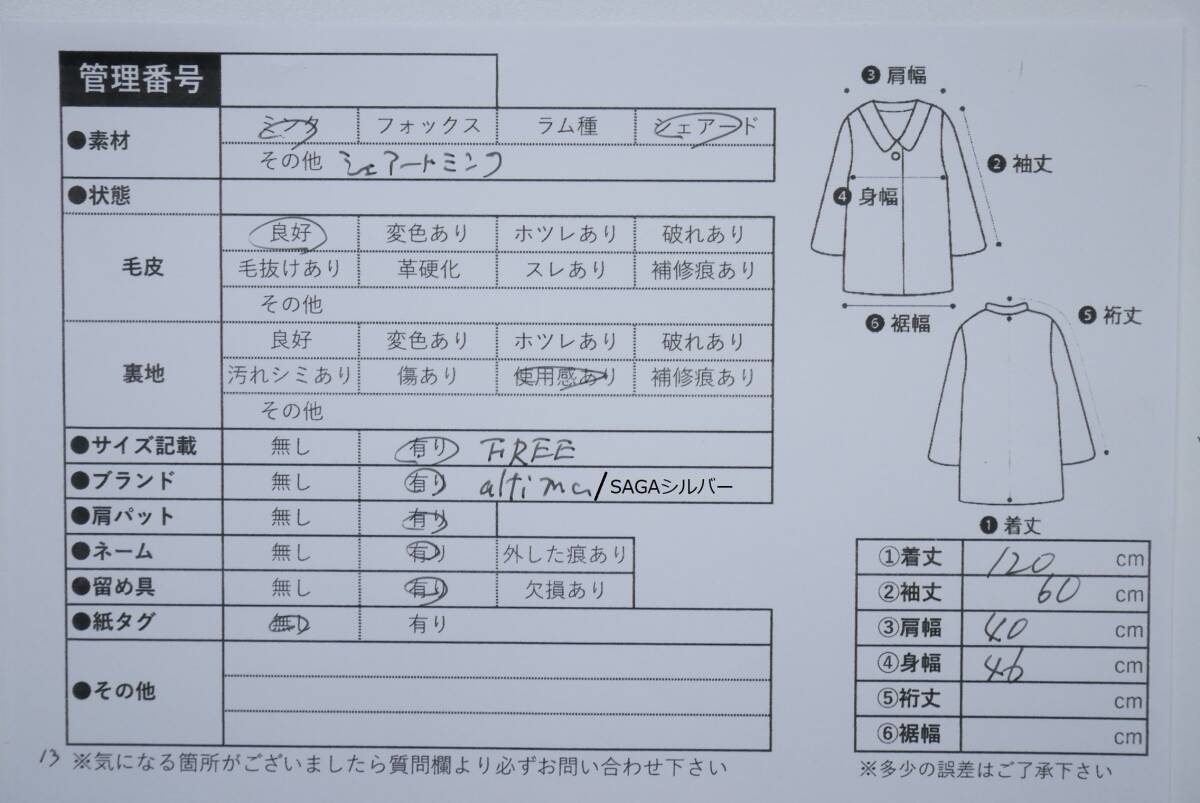 管理番号
●素材 ミンク フォックス ラム種 シェアード
その他 シェアードミンク
●状態
毛皮 良好 変色あり ホツレあり 破れあり
毛抜けあり 革硬化 スレあり 補修痕あり
その他
裏地 良好 変色あり ホツレあり 破れあり
汚れシミあり 傷あり 使用感あり 補修痕あり
その他
●サイズ記載 無し 有り FREE
●ブランド 無し 有り altima/SAGAシルバー
●肩パット 無し 有り
●ネーム 無し 有り 外した痕あり
●留め具 無し 有り 欠損あり
●紙タグ 無し 有り
●その他
13 ※気になる箇所がございましたら質問欄より必ずお問い合わせ下さい
❸肩幅
❷袖丈
❹身幅
❻裾幅
❺裄丈
❶着丈
①着丈 120 cm
②袖丈 60 cm
③肩幅 40 cm
④身幅 46 cm
⑤裄丈 cm
⑥裾幅 cm
※多少の誤差はご了承下さい